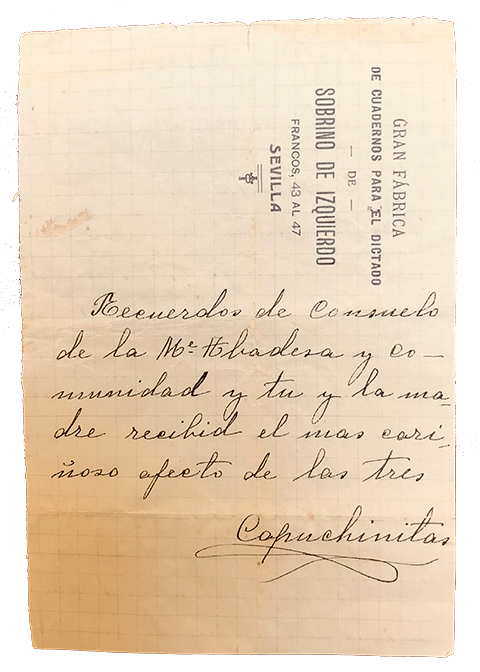 GRAN FÁBRICA
DE CUADERNOS PARA EL DICTADO
— DE —
SOBRINO DE IZQUIERDO
FRANCOS, 43 AL 47
SEVILLA
Recuerdos de Consuelo
de la Me. Abadesa y co-
munidad y tu y la ma-
dre recibid el mas cari-
ñoso afecto de las tres
Capuchinitas